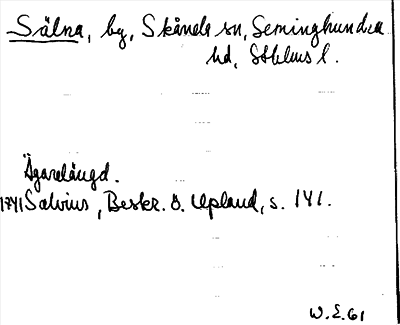 Sälna, by, Skånela sn, Seminghundra
hd, Sthlms l.
Ägarelängd.
1741 Salvius, Beskr. ö. Upland, s. 141.
W.E. 61